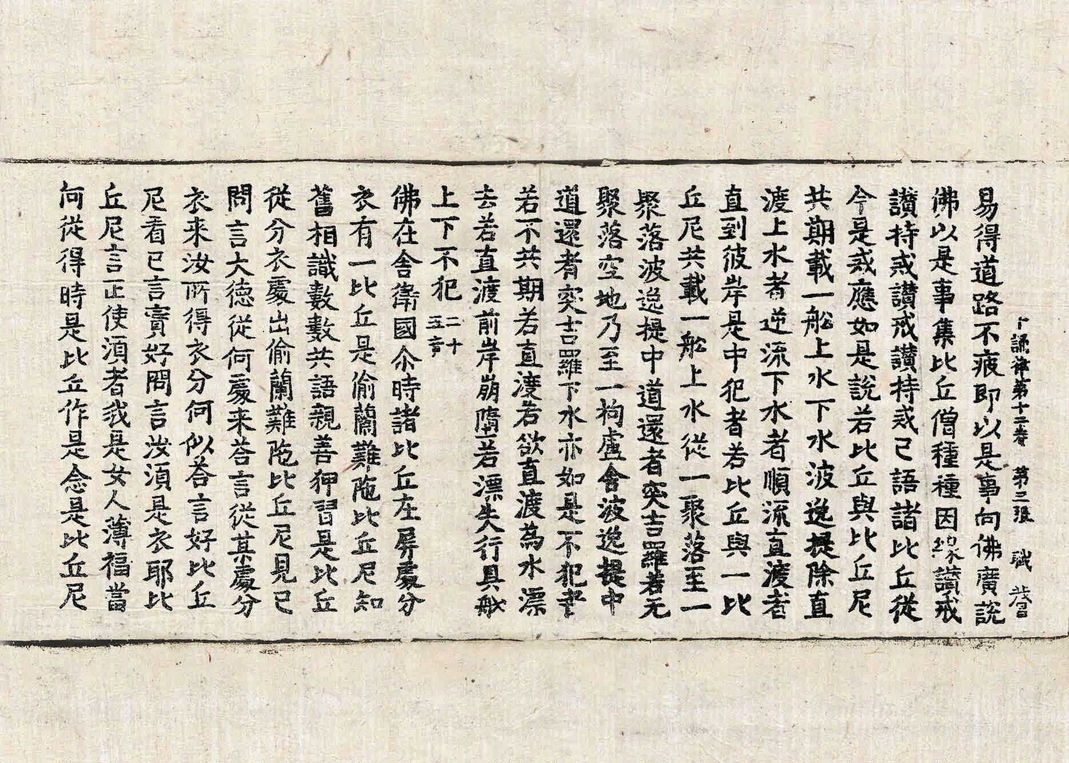 十誦律第十二卷　第三張　職字号
易得道路不疲即以是事向佛廣說
佛以是事集比丘僧種種因緣讚戒
讚持戒讚戒讚持戒已語諸比丘從
今是戒應如是說若比丘與比丘尼
共期載一舩上水下水波逸提除直
渡上水者逆流下水者順流直渡者
直到彼岸是中犯者若比丘與一比
丘尼共載一舩上水從一聚落至一
聚落波逸提中道還者突吉羅若无
聚落空地乃至一拘盧舍波逸提中
道還者突吉羅下水亦如是不犯者
若不共期若直渡若欲直渡為水漂
去若直渡前岸崩墮若漂失行具舩
上下不犯二十五竟
佛在舍衛國尒時諸比丘在屏處分
衣有一比丘是偷蘭難陁比丘尼知
舊相識數數共語親善狎習是比丘
從分衣處出偷蘭難陁比丘尼見已
問言大德從何處来荅言從某處分
衣来汝所得衣分何似荅言好比丘
尼看已言實好問言汝須是衣耶比
丘尼言正使須者我是女人薄福當
何從得時是比丘作是念是比丘尼